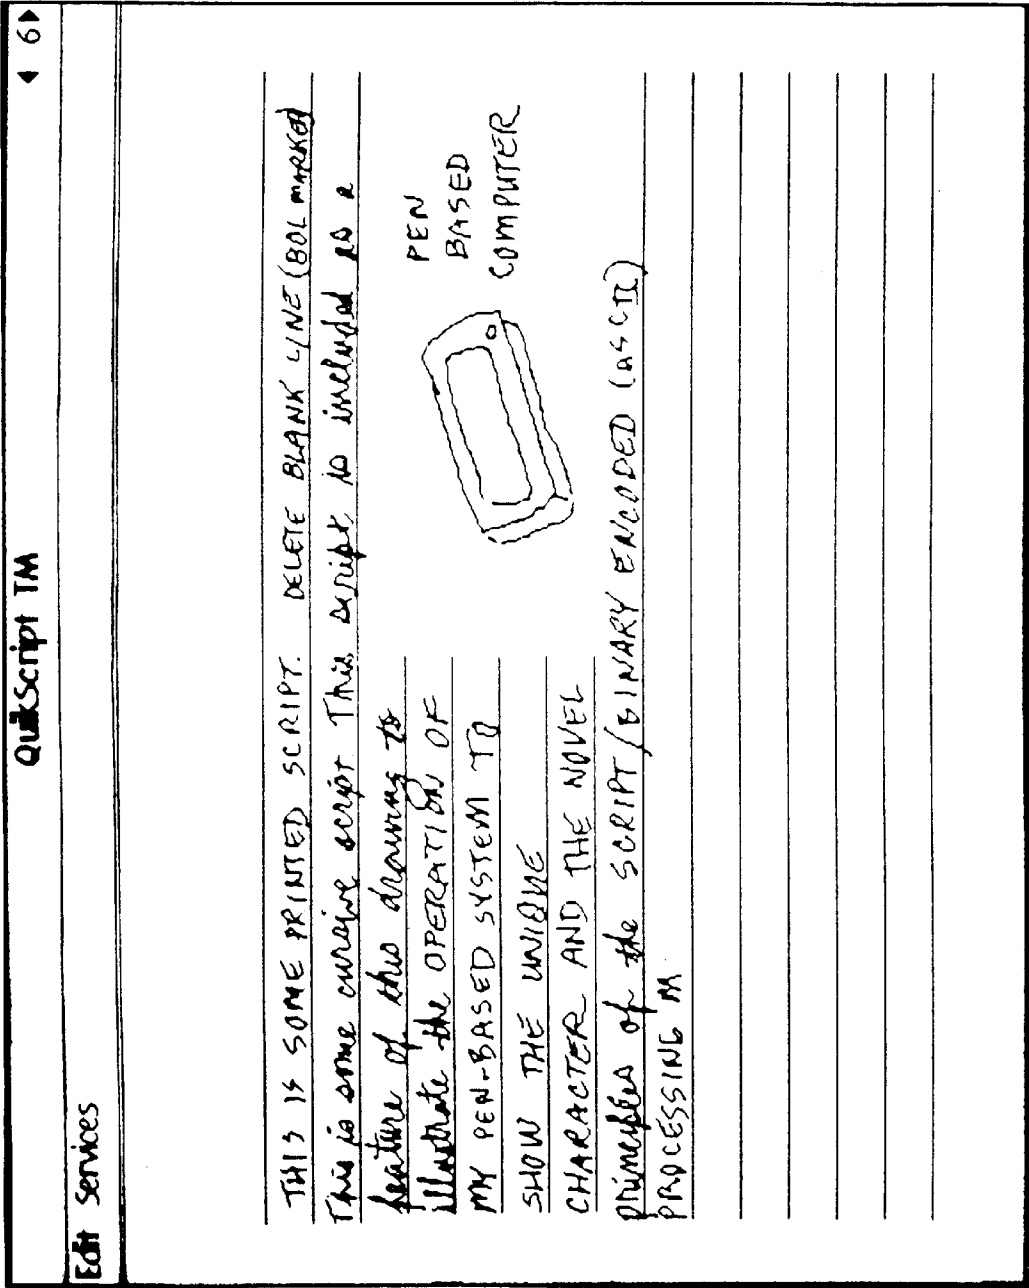 QuikScript TM
◀ 6▶
Edit Services
THIS IS SOME PRINTED SCRIPT. DELETE BLANK LINE (BOL MARKED
This is some cursive script This script is included as a
feature of this drawing to
illustrate the OPERATION OF
MY PEN-BASED SYSTEM TO
SHOW THE UNIQUE
CHARACTER AND THE NOVEL
PEN
BASED
COMPUTER
principles of the SCRIPT/BINARY ENCODED (ASCII)
PROCESSING M